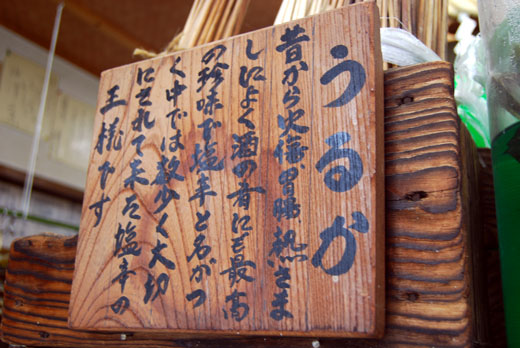 うるか
昔から火傷胃腸熱さま
しによく酒の肴にも最高
の珍味で塩辛と名がつ
く中では数少く大切
にされて来た塩辛の
王様です